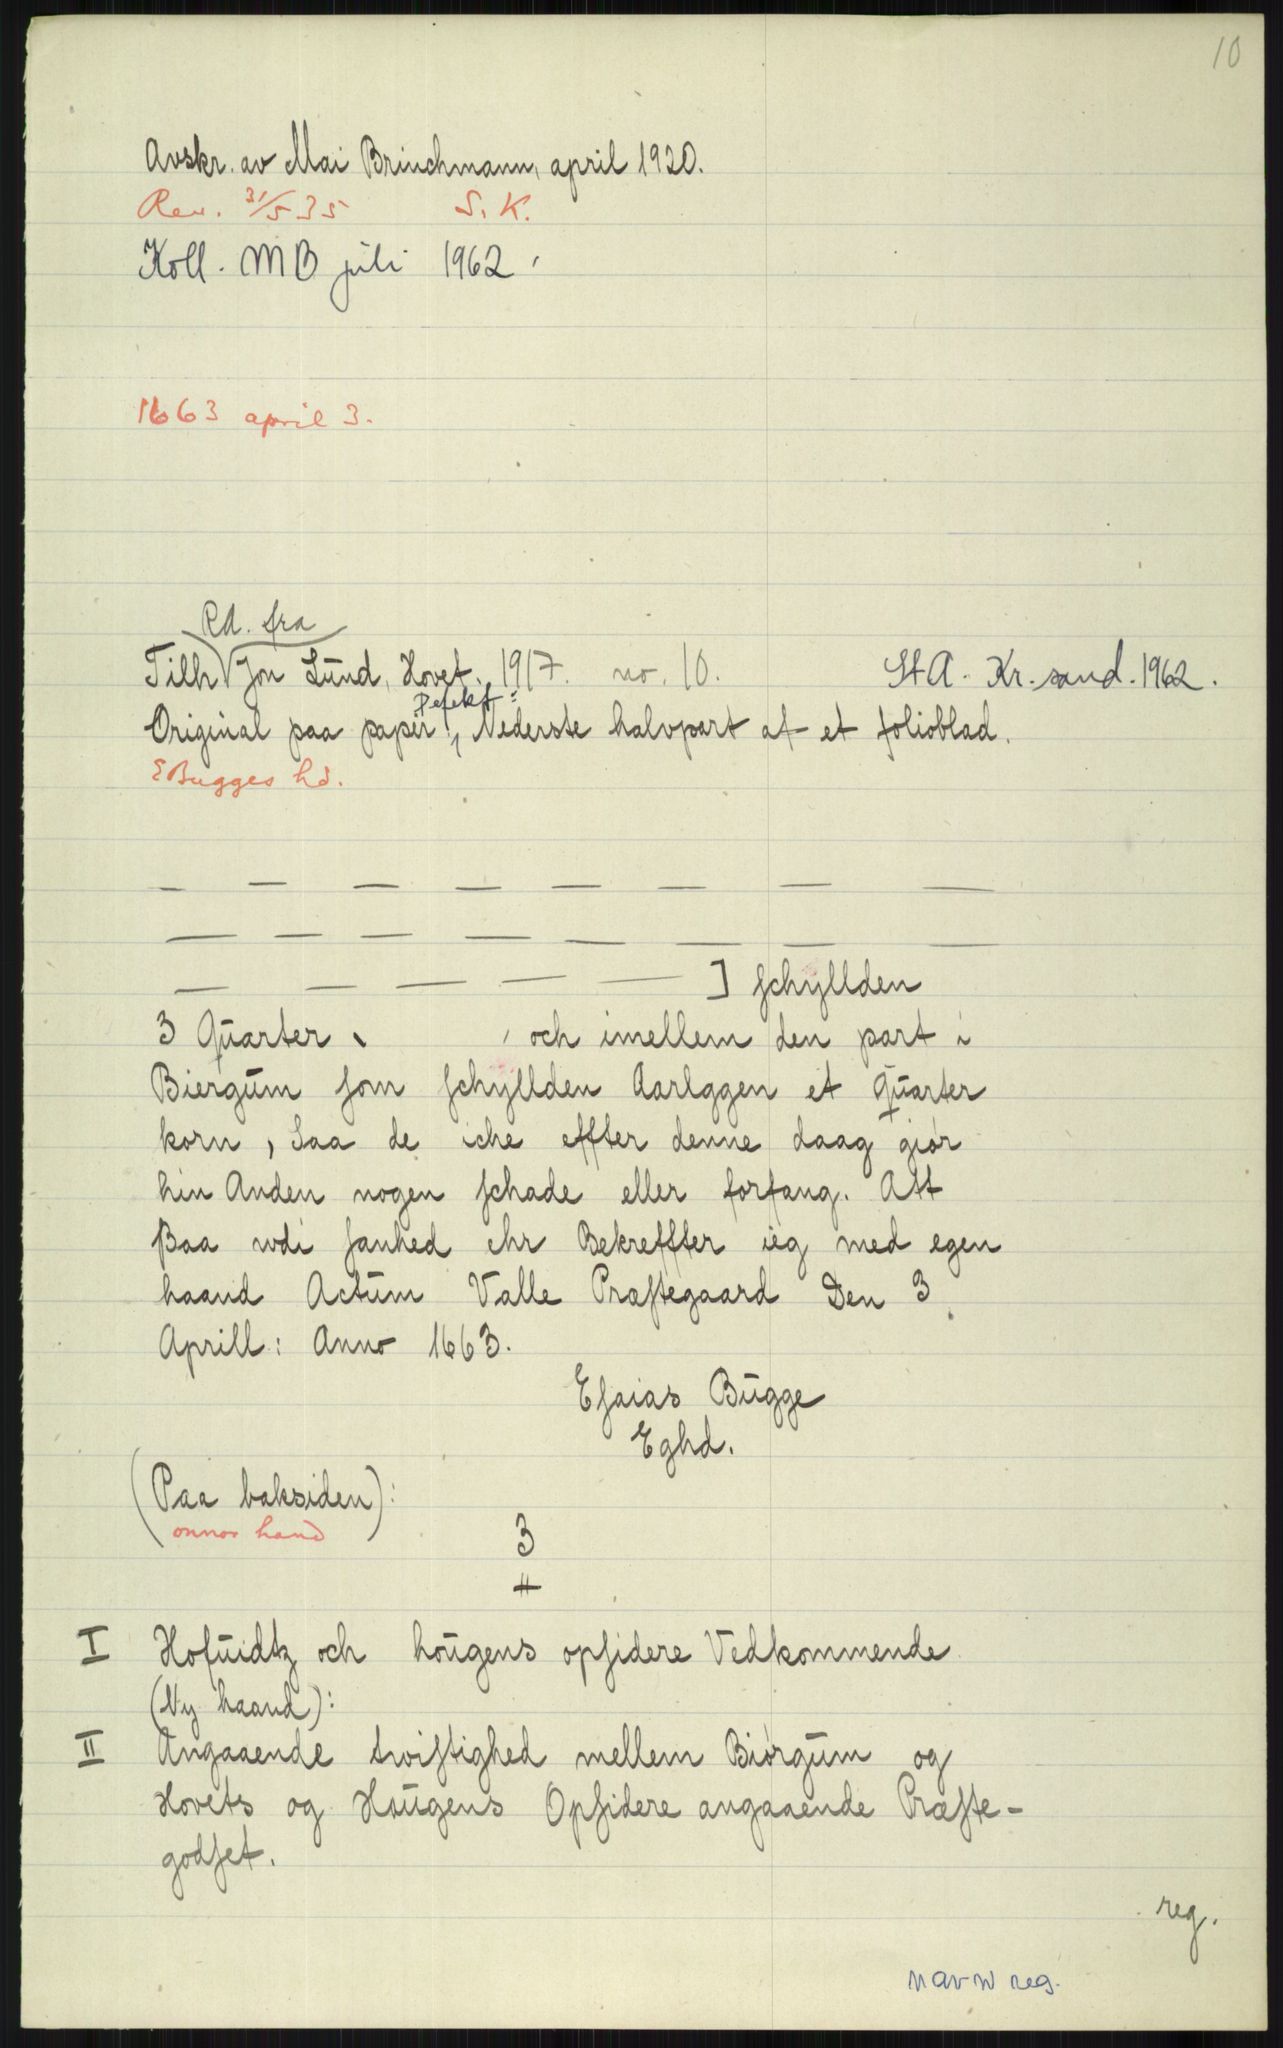 10
Avskr. av Mai Brinchmann, april 1920.
Rev. 31/5 35 S. K.
Koll. MB juli 1962.
1663 april 3.
Rd. fra
Tilh. Jon Lund, Hovet. 1917. no. 10. St A. Kr.sand. 1962.
Defekt:
Original paa papir, Nederste halvpart af et folioblad.
EBugges hd.
— — — — — — — —
— — — — — — — —
— — — — — ] ſchÿllden
3 Quarter , , och imellem den part i
Biergum ſom ſchÿllden Aarlggen et Quarter
korn, Saa de iche effter denne daag giør
hin Anden nogen ſchade eller forfang. Att
ßaa wdi ſanhed ehr Bekreffter ieg med egen
haand Actum Valle Præſtegaard Den 3
Aprill: Anno 1663.
Eſaias Bugge
Eghd.
(Paa baksiden):
onnor hand
3
#
I Hofuidtz och hougens opſidere Vedkommende
(Ny haand):
II Angaaende twiſtighed mellem Biørgum og
Hovets og Hougens Opſidere angaaende Præſte-
godſet.
reg.
navn reg.